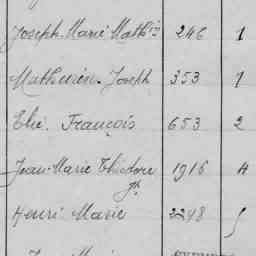 Joseph Marie Math 246 1
Mathurin Joseph 353 1
Elie François 653 2
Jean Marie Théodore 1916 4
Jh
Henri Marie 2248 5